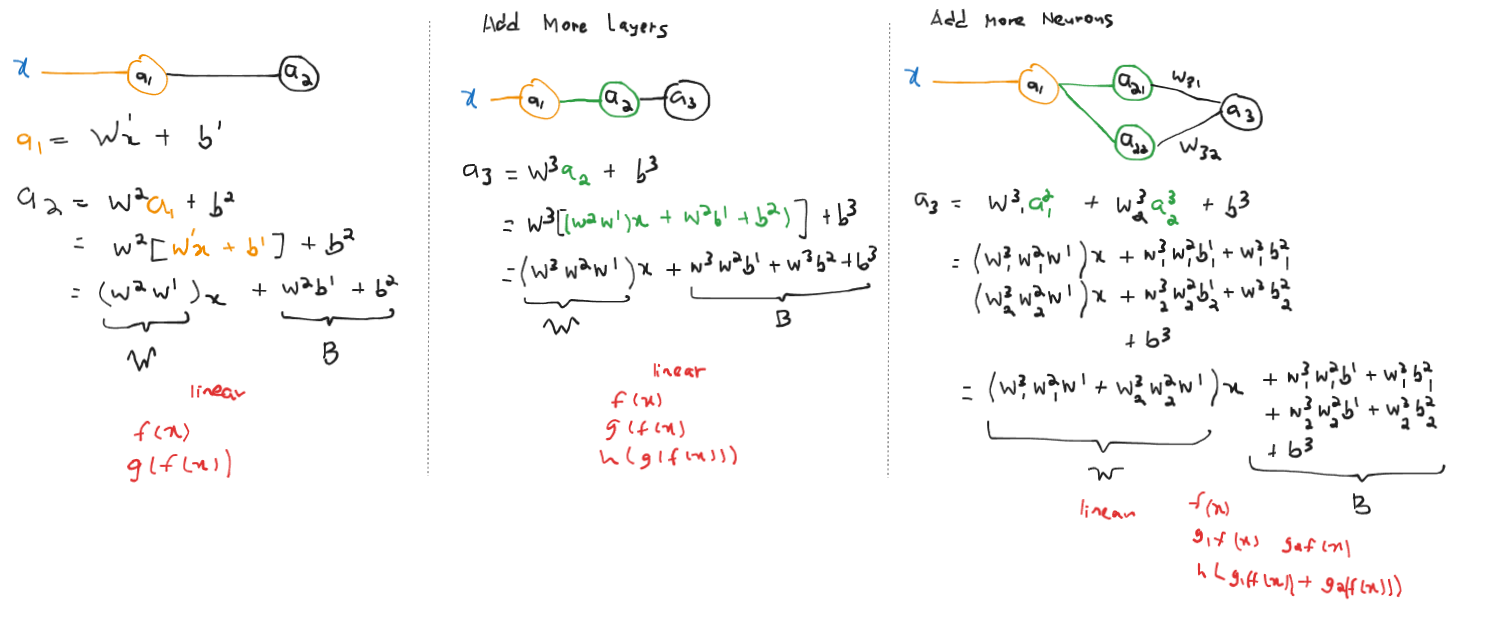 x a₁ a₂
a₁ = w¹x + b¹
a₂ = w²a₁ + b²
= w²[w¹x + b¹] + b²
= (w²w¹)x + w²b¹ + b²
W B
linear
f(x)
g(f(x))
Add More Layers
x a₁ a₂ a₃
a₃ = w³a₂ + b³
= w³[(w²w¹)x + w²b¹ + b²)] + b³
= (w³w²w¹)x + w³w²b¹ + w³b² + b³
W B
linear
f(x)
g(f(x)
h(g(f(x)))
Add More Neurons
x a₁ a₂₁ w₃₁ a₃
a₂₂ w₃₂
a₃ = w³₁a²₁ + w³₂a³₂ + b³
= (w³₁w²₁w¹)x + w³₁w²₁b¹₁ + w³₁b²₁
(w³₂w²₂w¹)x + w³₂w²₂b¹₂ + w³b²₂
+ b³
= (w³₁w²₁w¹ + w³₂w²₂w¹)x + w³₁w²₁b¹ + w³₁b²₁
+ w³₂w²₂b¹ + w³₂b²₂
+ b³
W B
linear
f(x)
g₁f(x) g₂f(x)
h(g₁f(x)) + g₂f(x)))